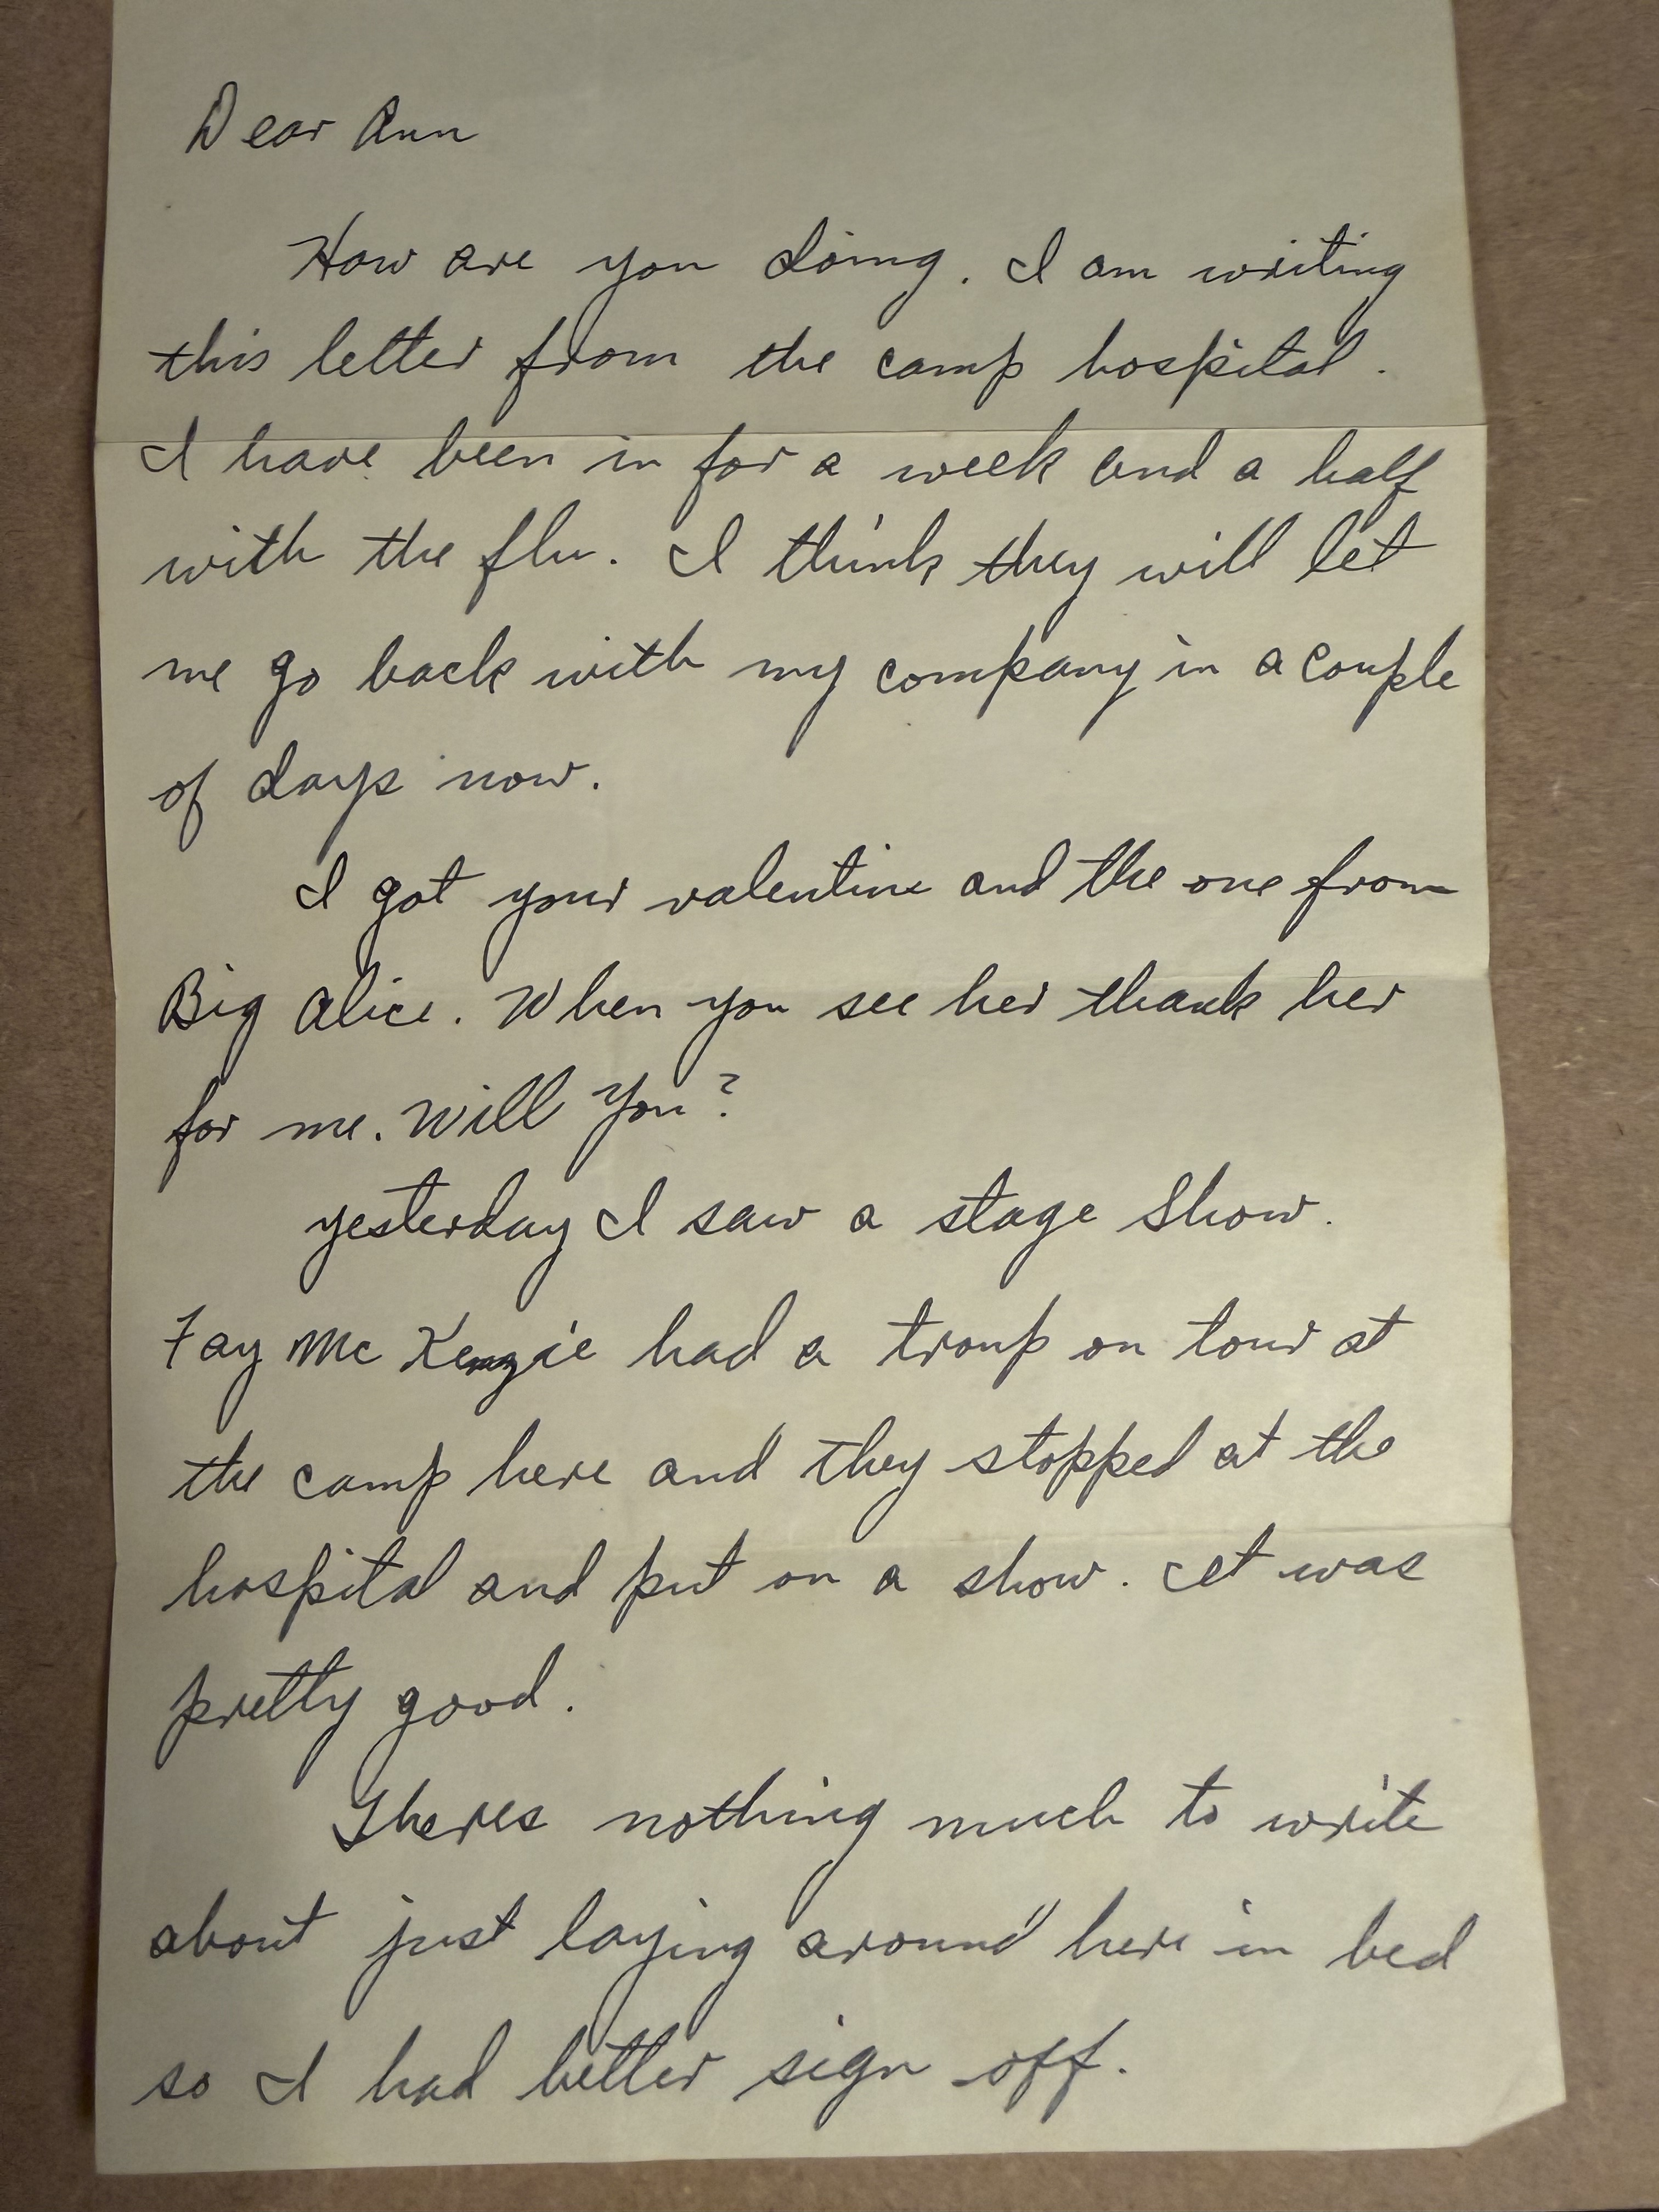 Dear Ann
How are you doing. I am writing
this letter from the camp hospital.
I have been in for a week and a half
with the flu. I think they will let
me go back with my company in a couple
of days now.
I got your valentine and the one from
Big Alice. When you see her thank her
for me. Will You?
yesterday I saw a stage show.
Fay Mc Kenzie had a troup on tour at
the camp here and they stopped at the
hospital and put on a show. It was
pretty good.
Theres nothing much to write
about just laying around here in bed
so I had better sign off.